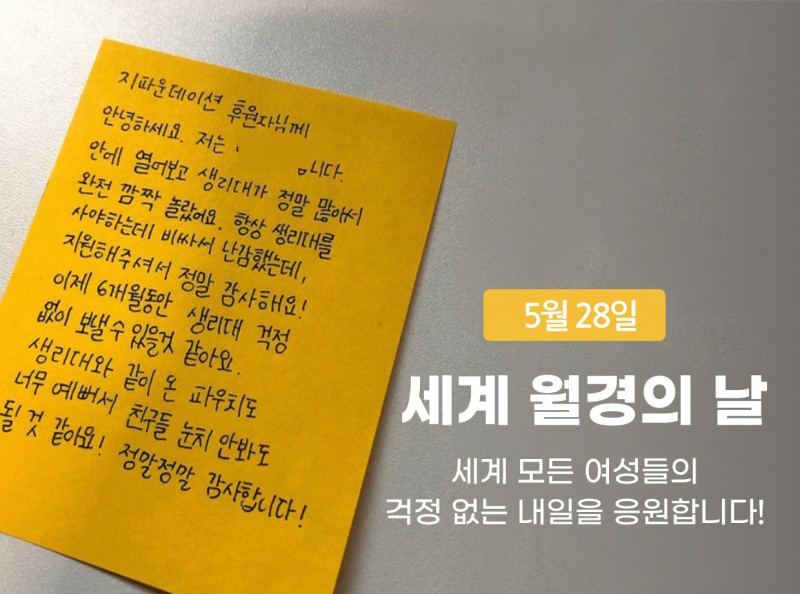 지파운데이션 후원자님께
안녕하세요. 저는 니다.
안에 열어보고 생리대가 정말 많아서
완전 깜짝 놀랐어요. 항상 생리대를
사야하는데 비싸서 난감했는데,
지원해주셔서 정말 감사해요!
이제 6개월동안 생리대 걱정
없이 보낼 수 있을것 같아요.
생리대와 같이 온 파우치도
너무 예뻐서 친구들 눈치 안봐도
될 것 같아요! 정말정말 감사합니다!
5월 28일
세계 월경의 날
세계 모든 여성들의
걱정 없는 내일을 응원합니다!